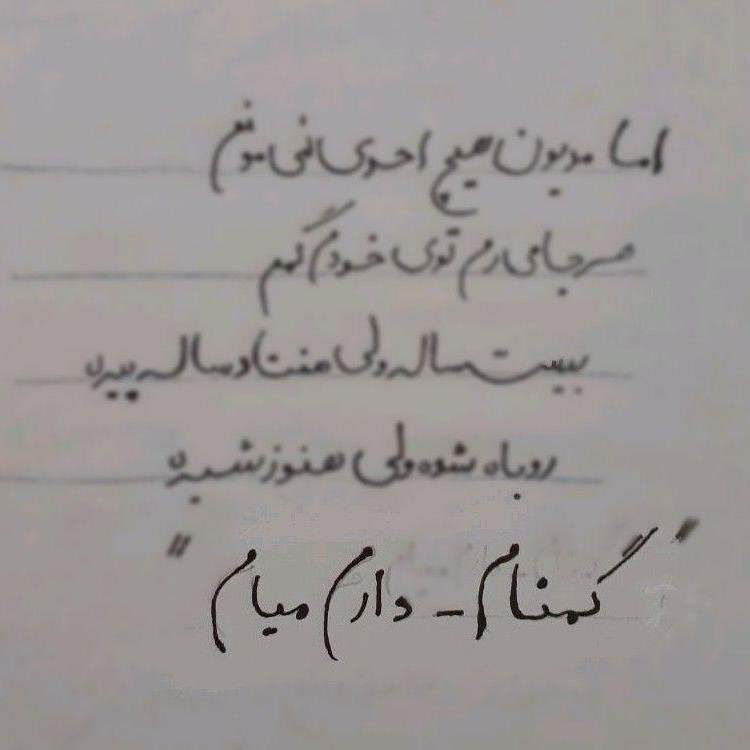 اما مدیون هیچ احدی نمی مونم
هرجا می رم توی خودم گمم
بیست ساله ولی هفتاد ساله پیره
روباه شده ولی هنوز شیره
"گمنام - دارم میام"